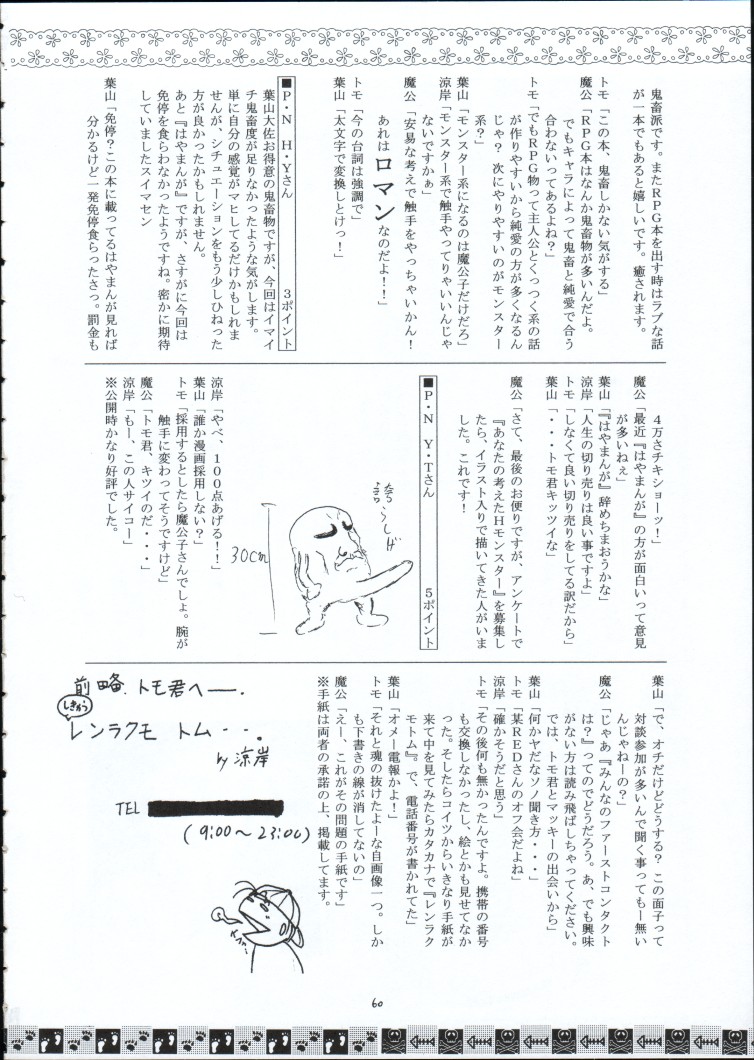 鬼畜派です。またRPG本を出す時はラブな話
が一本でもあると嬉しいです。癒されます。
トモ「この本、鬼畜しかない気がする」
魔公「RPG本はなんか鬼畜物が多いんだよ。
でもキャラによって鬼畜と純愛で合う
合わないってあるよね?」
トモ「でもRPG物って主人公とくっつく系の話
が作りやすいから純愛の方が多くなるん
じゃ? 次にやりやすいのがモンスター
系?」
葉山「モンスター系になるのは魔公子だけだろ」
涼岸「モンスター系で触手やってりゃいいんじゃ
ないですかぁ」
魔公「安易な考えで触手をやっちゃいかん!
あれはロマンなのだよ!!」
トモ「今の台詞は強調で」
葉山「太文字で変換しとけっ!」
■P・N H・Yさん 3ポイント
葉山大佐お得意の鬼畜物ですが、今回はイマイ
チ鬼畜度が足りなかったような気がします。
単に自分の感覚がマヒしてるだけかもしれま
せんが、シチュエーションをもう少しひねった
方が良かったかもしれません。
あと『はやまんが』ですが、さすがに今回は
免停を食らわなかったようですね。密かに期待
していましたスイマセン
葉山「免停?この本に載ってるはやまんが見れば
分かるけど一発免停食らったさっ。罰金も
4万さチキショーッ!」
魔公「最近『はやまんが』の方が面白いって意見
が多いねぇ」
葉山「『はやまんが』辞めちまおうかな」
涼岸「人生の切り売りは良い事ですよ」
トモ「しなくて良い切り売りをしてる訳だから」
葉山「・・・トモ君キッツイな」
■P・N Y・Tさん 5ポイント
魔公「さて、最後のお便りですが、アンケートで
『あなたの考えたHモンスター』を募集し
たら、イラスト入りで描いてきた人がいま
した。これです!
誇らしげ
30cm
涼岸「やべ、100点あげる!!」
葉山「誰か漫画採用しない?」
トモ「採用するとしたら魔公子さんでしょ。腕が
触手に変わってそうですけど」
魔公「トモ君、キツイのだ・・・」
涼岸「もー、この人サイコー」
※公開時かなり好評でした。
葉山「で、オチだけどどうする? この面子って
対談参加が多いんで聞く事ってもー無い
んじゃねーの?」
魔公「じゃあ『みんなのファーストコンタクト
は?』ってのでどうだろう。あ、でも興味
がない方は読み飛ばしちゃってください。
では、トモ君とマッキーの出会いから」
葉山「何かヤだなソノ聞き方・・・」
トモ「某REDさんのオフ会だよね」
涼岸「確かそうだと思う」
トモ「その後何も無かったんですよ。携帯の番号
も交換しなかったし、絵とかも見せてなか
った。そしたらコイツからいきなり手紙が
来て中を見てみたらカタカナで『レンラク
モトム』。で、電話番号が書かれてた」
葉山「オメー電報かよ!」
トモ「それと魂の抜けたよーな自画像一つ。しか
も下書きの線が消してないの」
魔公「えー、これがその問題の手紙です」
※手紙は両者の承諾の上、掲載してます。
前略、トモ君へ―。
しきゅう
レンラクモトム・・・。
by 涼岸
TEL
(9:00~23:00)
60